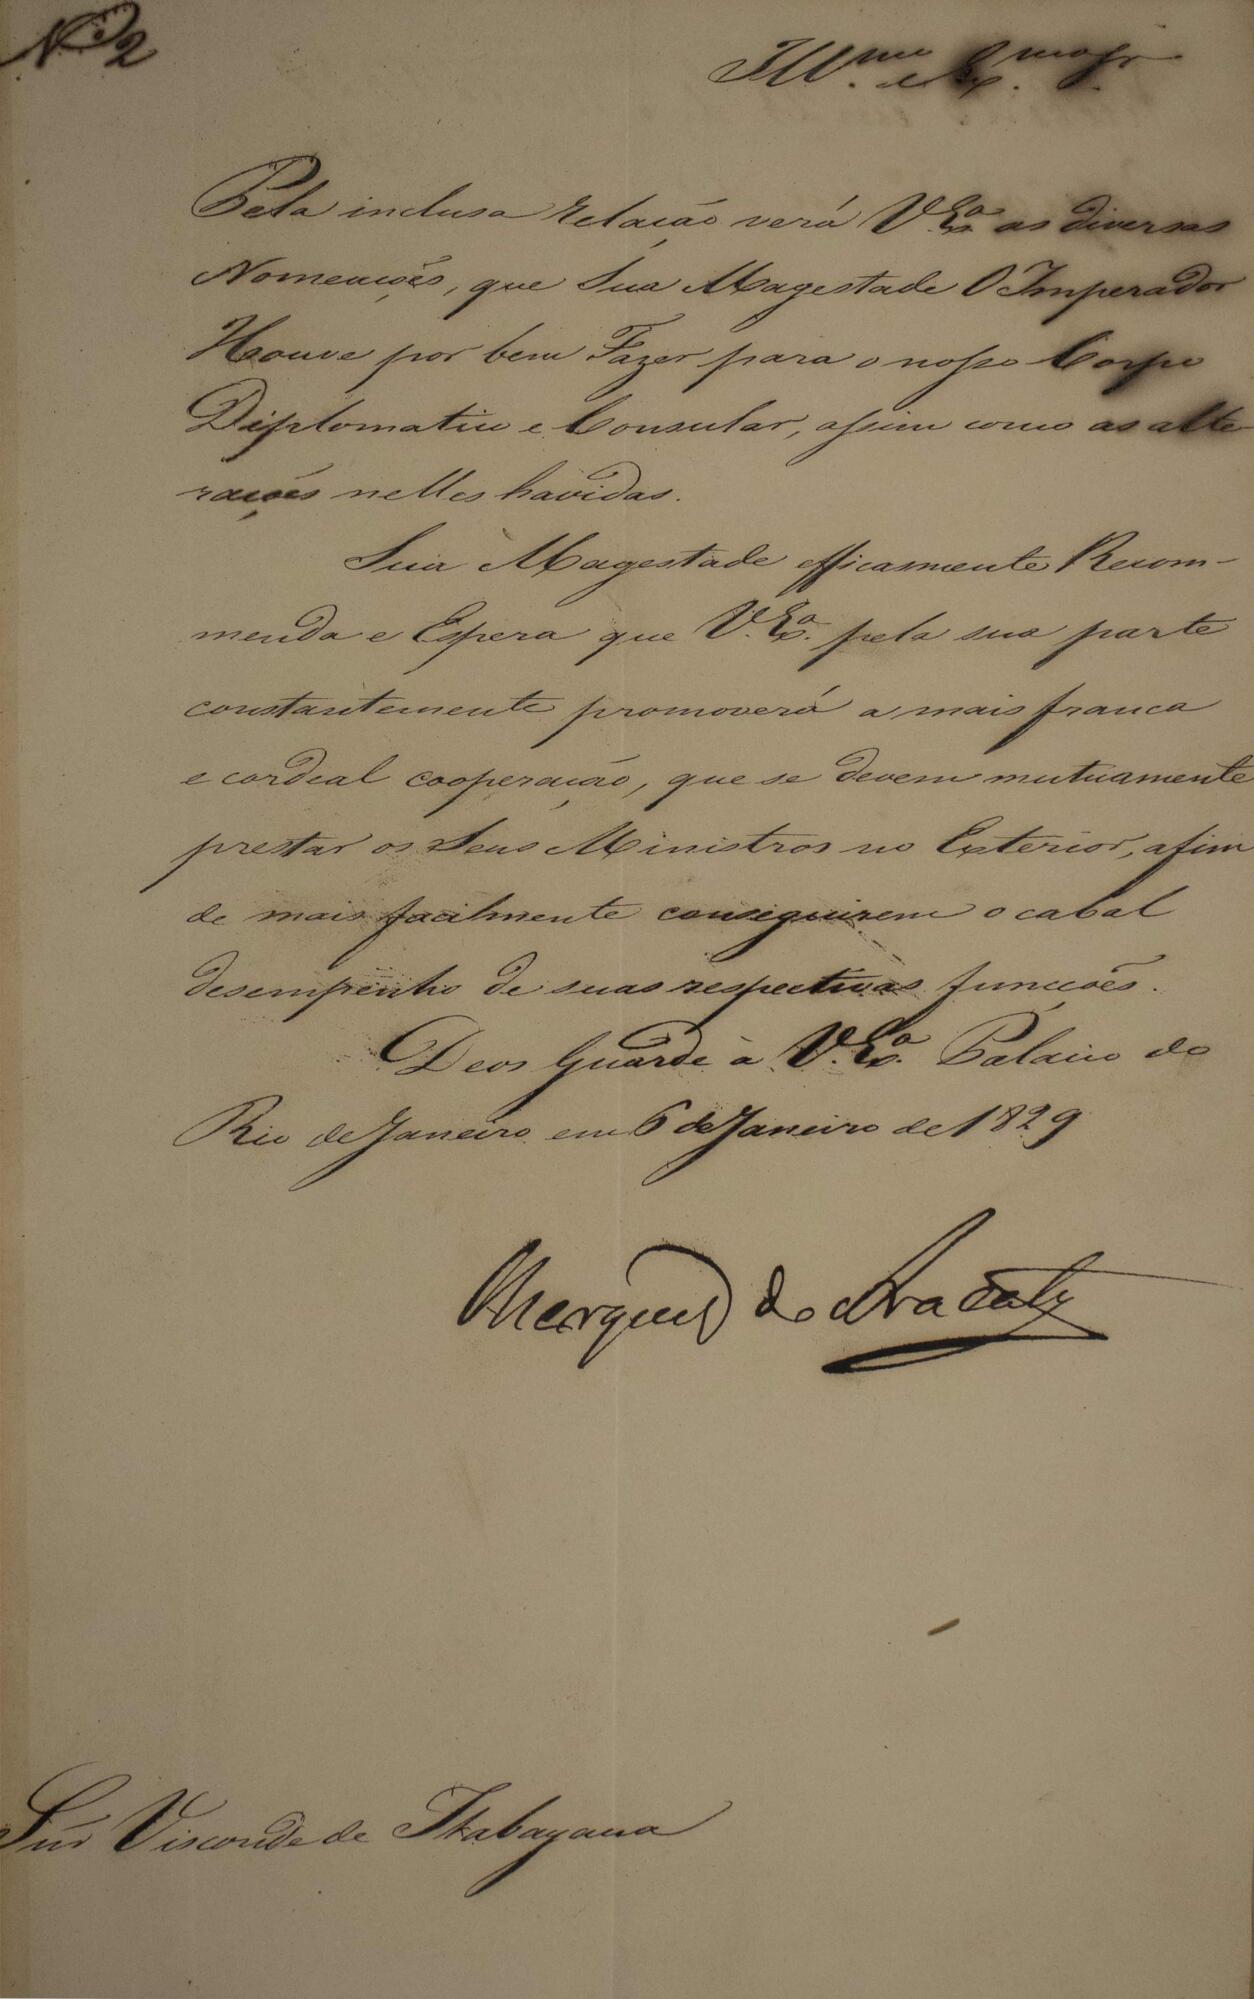 N.º 2
Ill.mo e Ex.mo Sr.
Pela inclusa relação verá V. Ex.a as diversas
Nomeações, que Sua Magestade O Imperador
Houve por bem Fazer para o nosso Corpo
Diplomatico e Consular, assim como as alte-
rações nelles havidas.
Sua Magestade efficasmente Recom-
menda e Espera que V. Ex.a pela sua parte
constantemente promoverá a mais franca
e cordeal cooperação, que se devem mutuamente
prestar os Seus Ministros no Exterior, afim
de mais facilmente conseguirem o cabal
desempenho de suas respectivas funcções.
Deos Guarde a V. Ex.a Palacio do
Rio de Janeiro em 6 de Janeiro de 1829
Marquez do Aracaty
Snr Visconde de Itabayana